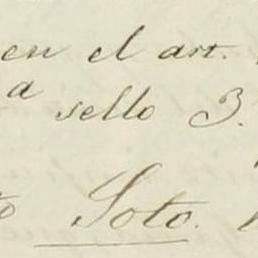 en el art.
a sello 3.
Soto.